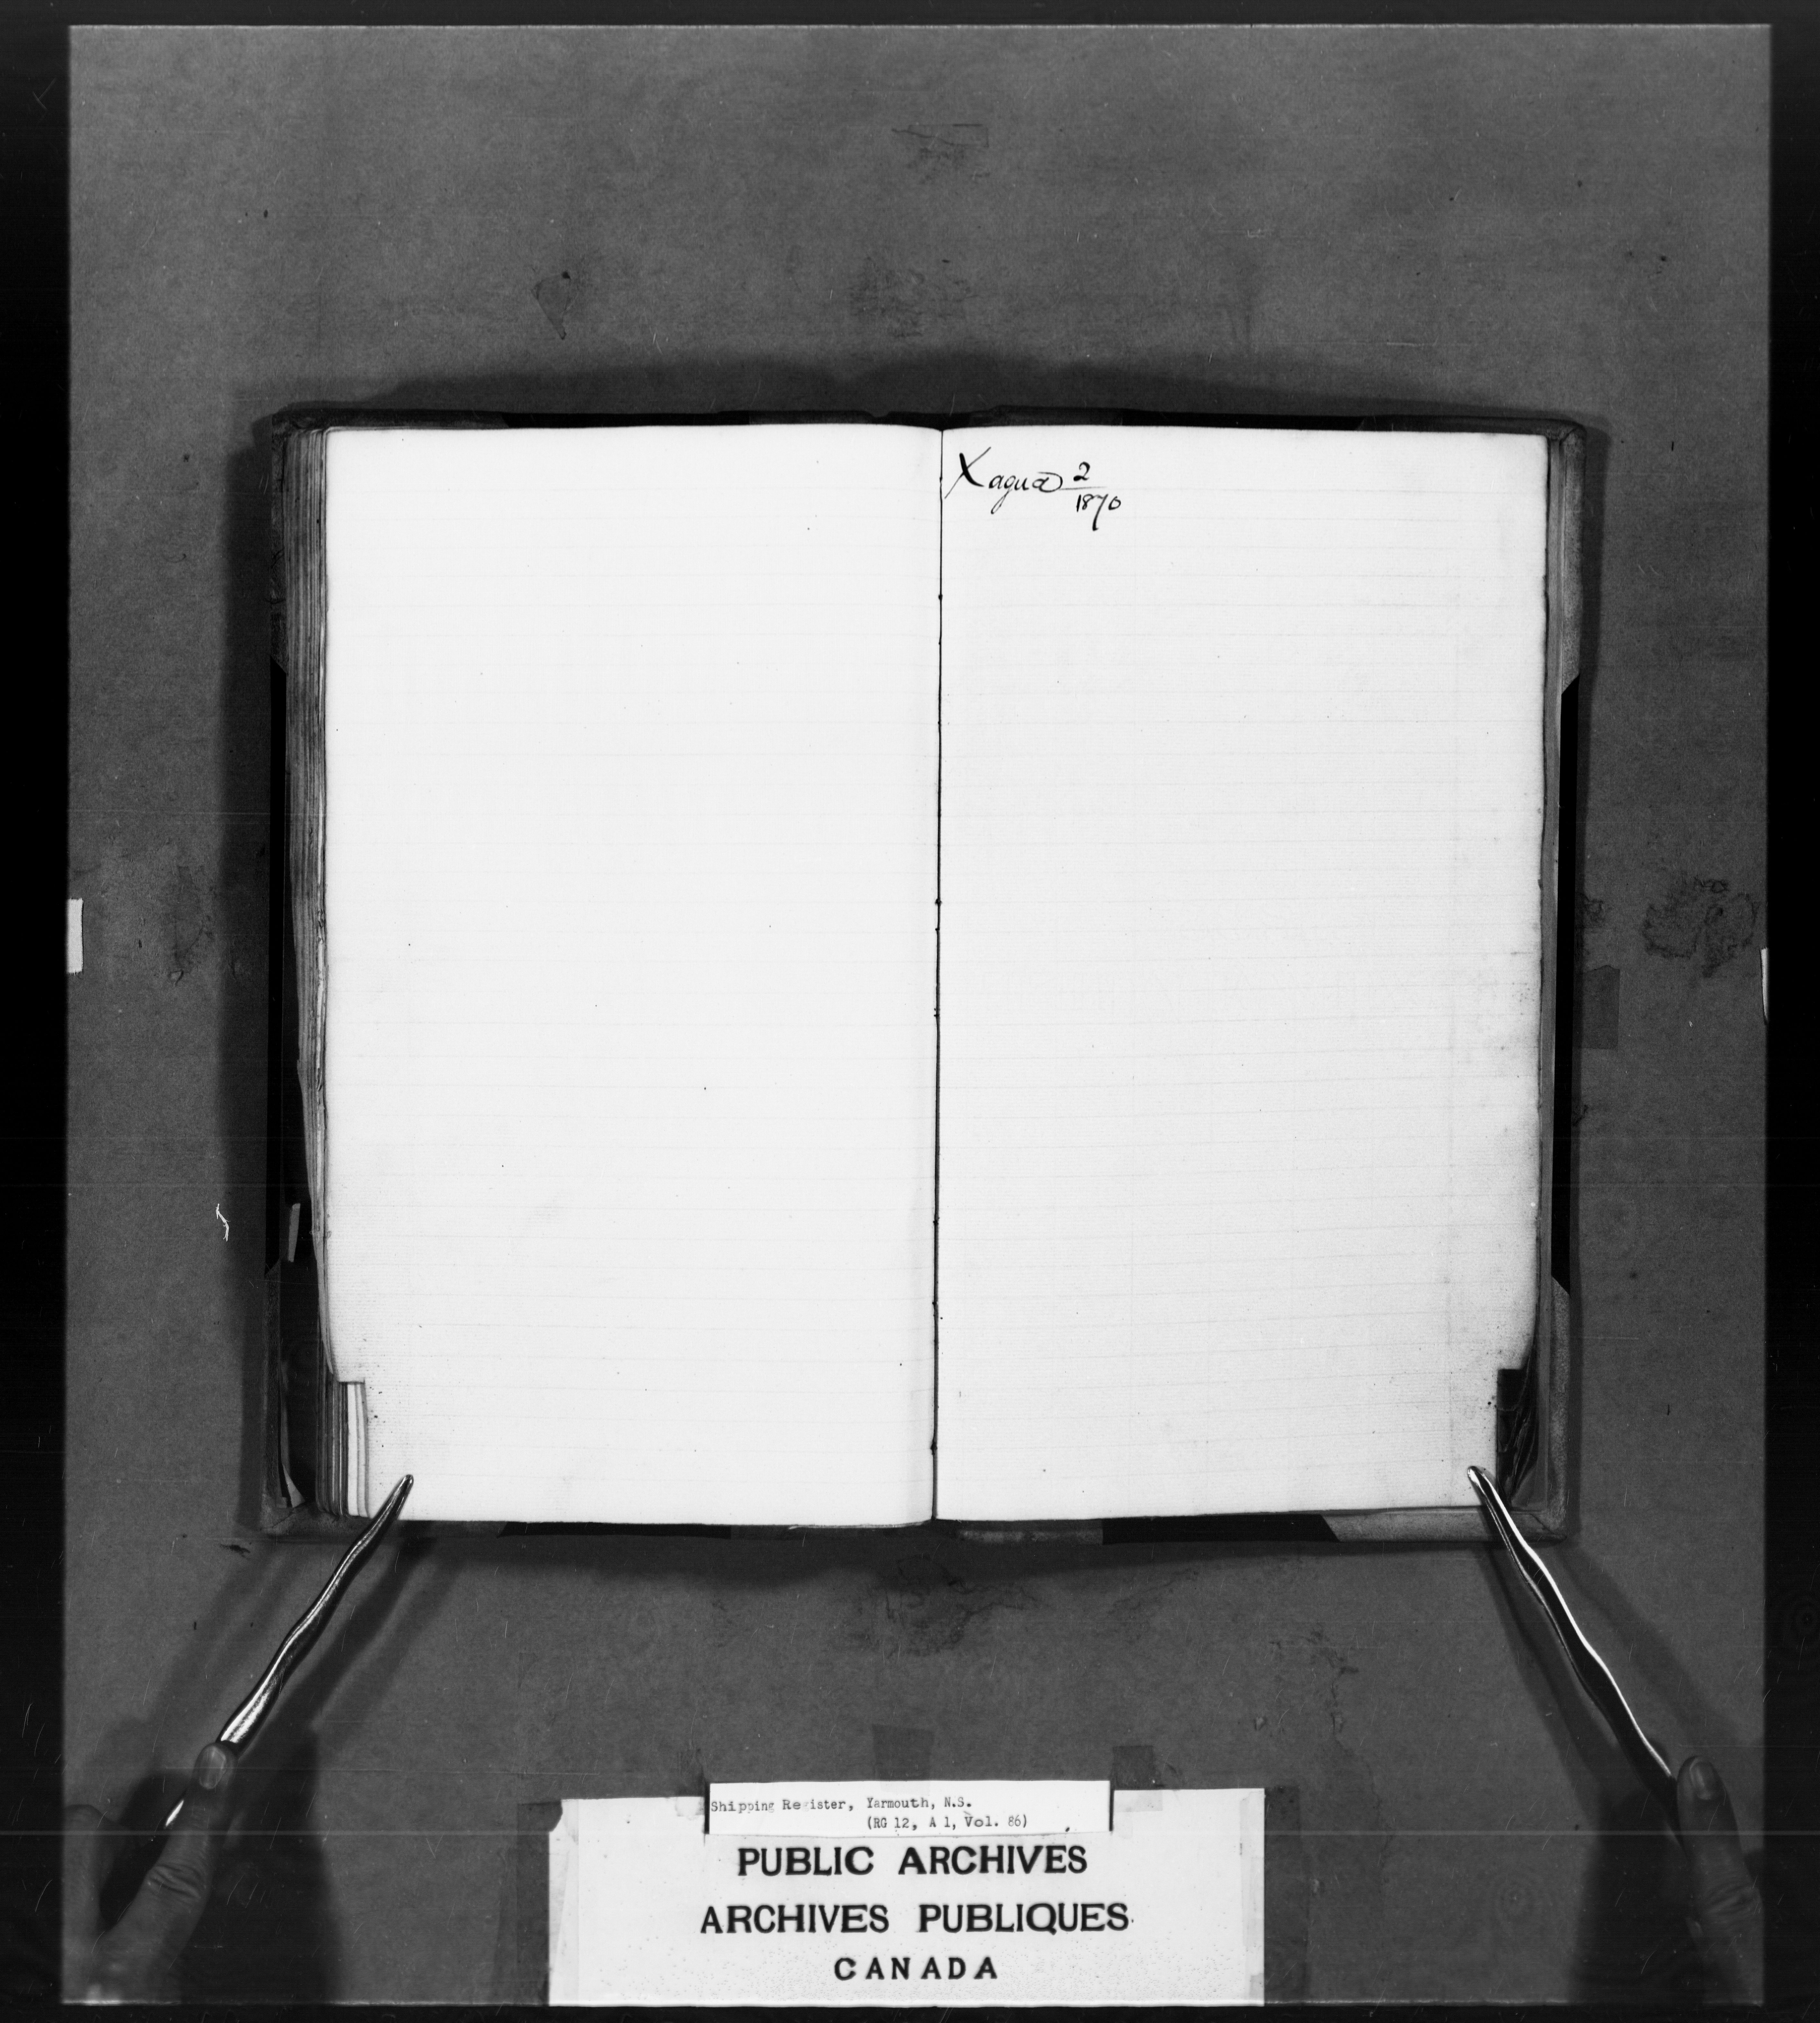 Xagua 2/1870
Shipping Register, Yarmouth, N.S.
(RG 12, A 1, Vol. 86)
PUBLIC ARCHIVES
ARCHIVES PUBLIQUES
CANADA